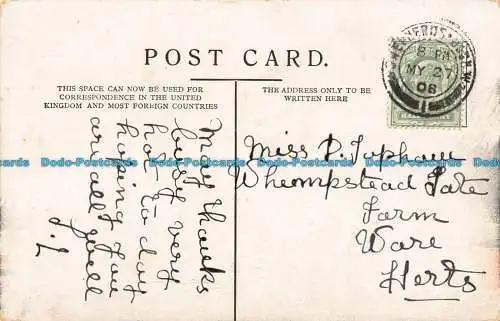 POST CARD.
THIS SPACE CAN NOW BE USED FOR
CORRESPONDENCE IN THE UNITED
KINGDOM AND MOST FOREIGN COUNTRIES
THE ADDRESS ONLY TO BE
WRITTEN HERE
8 PM
MY 27
06
Many thanks
very
hot to day
hoping you
are all well
Miss P. Topham
Whempstead Gate
Farm
Ware
Herts
Dodo-Postcards Dodo-Postcards Dodo-Postcards Dodo-Postcards